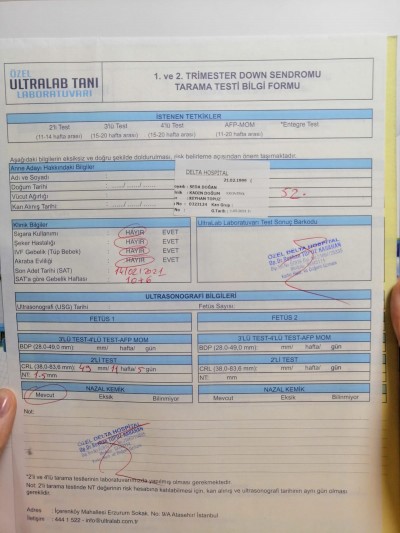 ÖZEL
ULTRALAB TANI
LABORATUVARI
1. ve 2. TRİMESTER DOWN SENDROMU
TARAMA TESTİ BİLGİ FORMU
İSTENEN TETKİKLER
2'li Test 3'lü Test 4'lü Test AFP-MOM *Entegre Test
(11-14 hafta arası) (15-20 hafta arası) (15-20 hafta arası) (11-20 hafta arası)
Aşağıdaki bilgilerin eksiksiz ve doğru şekilde doldurulması, risk belirleme açısından önem taşımaktadır.
Anne Adayı Hakkındaki Bilgiler
DELTA HOSPITAL
Adı ve Soyadı
21.02.1999
Doğum Tarihi
Vücut Ağırlığı
52
Kan Alınış Tarihi
Klinik Bilgiler
UltraLab Laboratuvarı Test Sonuç Barkodu
Sigara Kullanımı HAYIR EVET
Şeker Hastalığı HAYIR EVET
IVF Gebelik (Tüp Bebek) HAYIR EVET
Akraba Evliliği HAYIR EVET
ÖZEL DELTA HOSPITAL
Son Adet Tarihi (SAT) 14/02/2021
SAT'a göre Gebelik Haftası 10+6
ULTRASONOGRAFİ BİLGİLERİ
Ultrasonografi (USG) Tarihi Fetüs Sayısı:
FETÜS 1 FETÜS 2
3'LÜ TEST-4'LÜ TEST-AFP MOM 3'LÜ TEST-4'LÜ TEST-AFP MOM
BDP (28,0-49,0 mm): mm/ hafta/ gün BDP (28,0-49,0 mm): mm/ hafta/ gün
2'Lİ TEST 2'Lİ TEST
CRL (38,0-83,6 mm): 49 mm/ 11 hafta/ 5 gün CRL (38,0-83,6 mm): mm/ hafta/ gün
NT: 1.5 mm NT: mm
NAZAL KEMİK NAZAL KEMİK
Mevcut Eksik Bilinmiyor Mevcut Eksik Bilinmiyor
Not:
ÖZEL DELTA HOSPITAL
*2'li ve 4'lü tarama testlerinin laboratuvarımızda yapılmış olması gerekmektedir.
Not: 2'li tarama testinde NT değerinin risk hesabına katılabilmesi için, kan alınış ve ultrasonografi tarihinin aynı gün olması
gereklidir.
Adres : İçerenköy Mahallesi Erzurum Sokak. No: 9/A Ataşehir/ İstanbul
İletişim : 444 1 522 - info@ultralab.com.tr